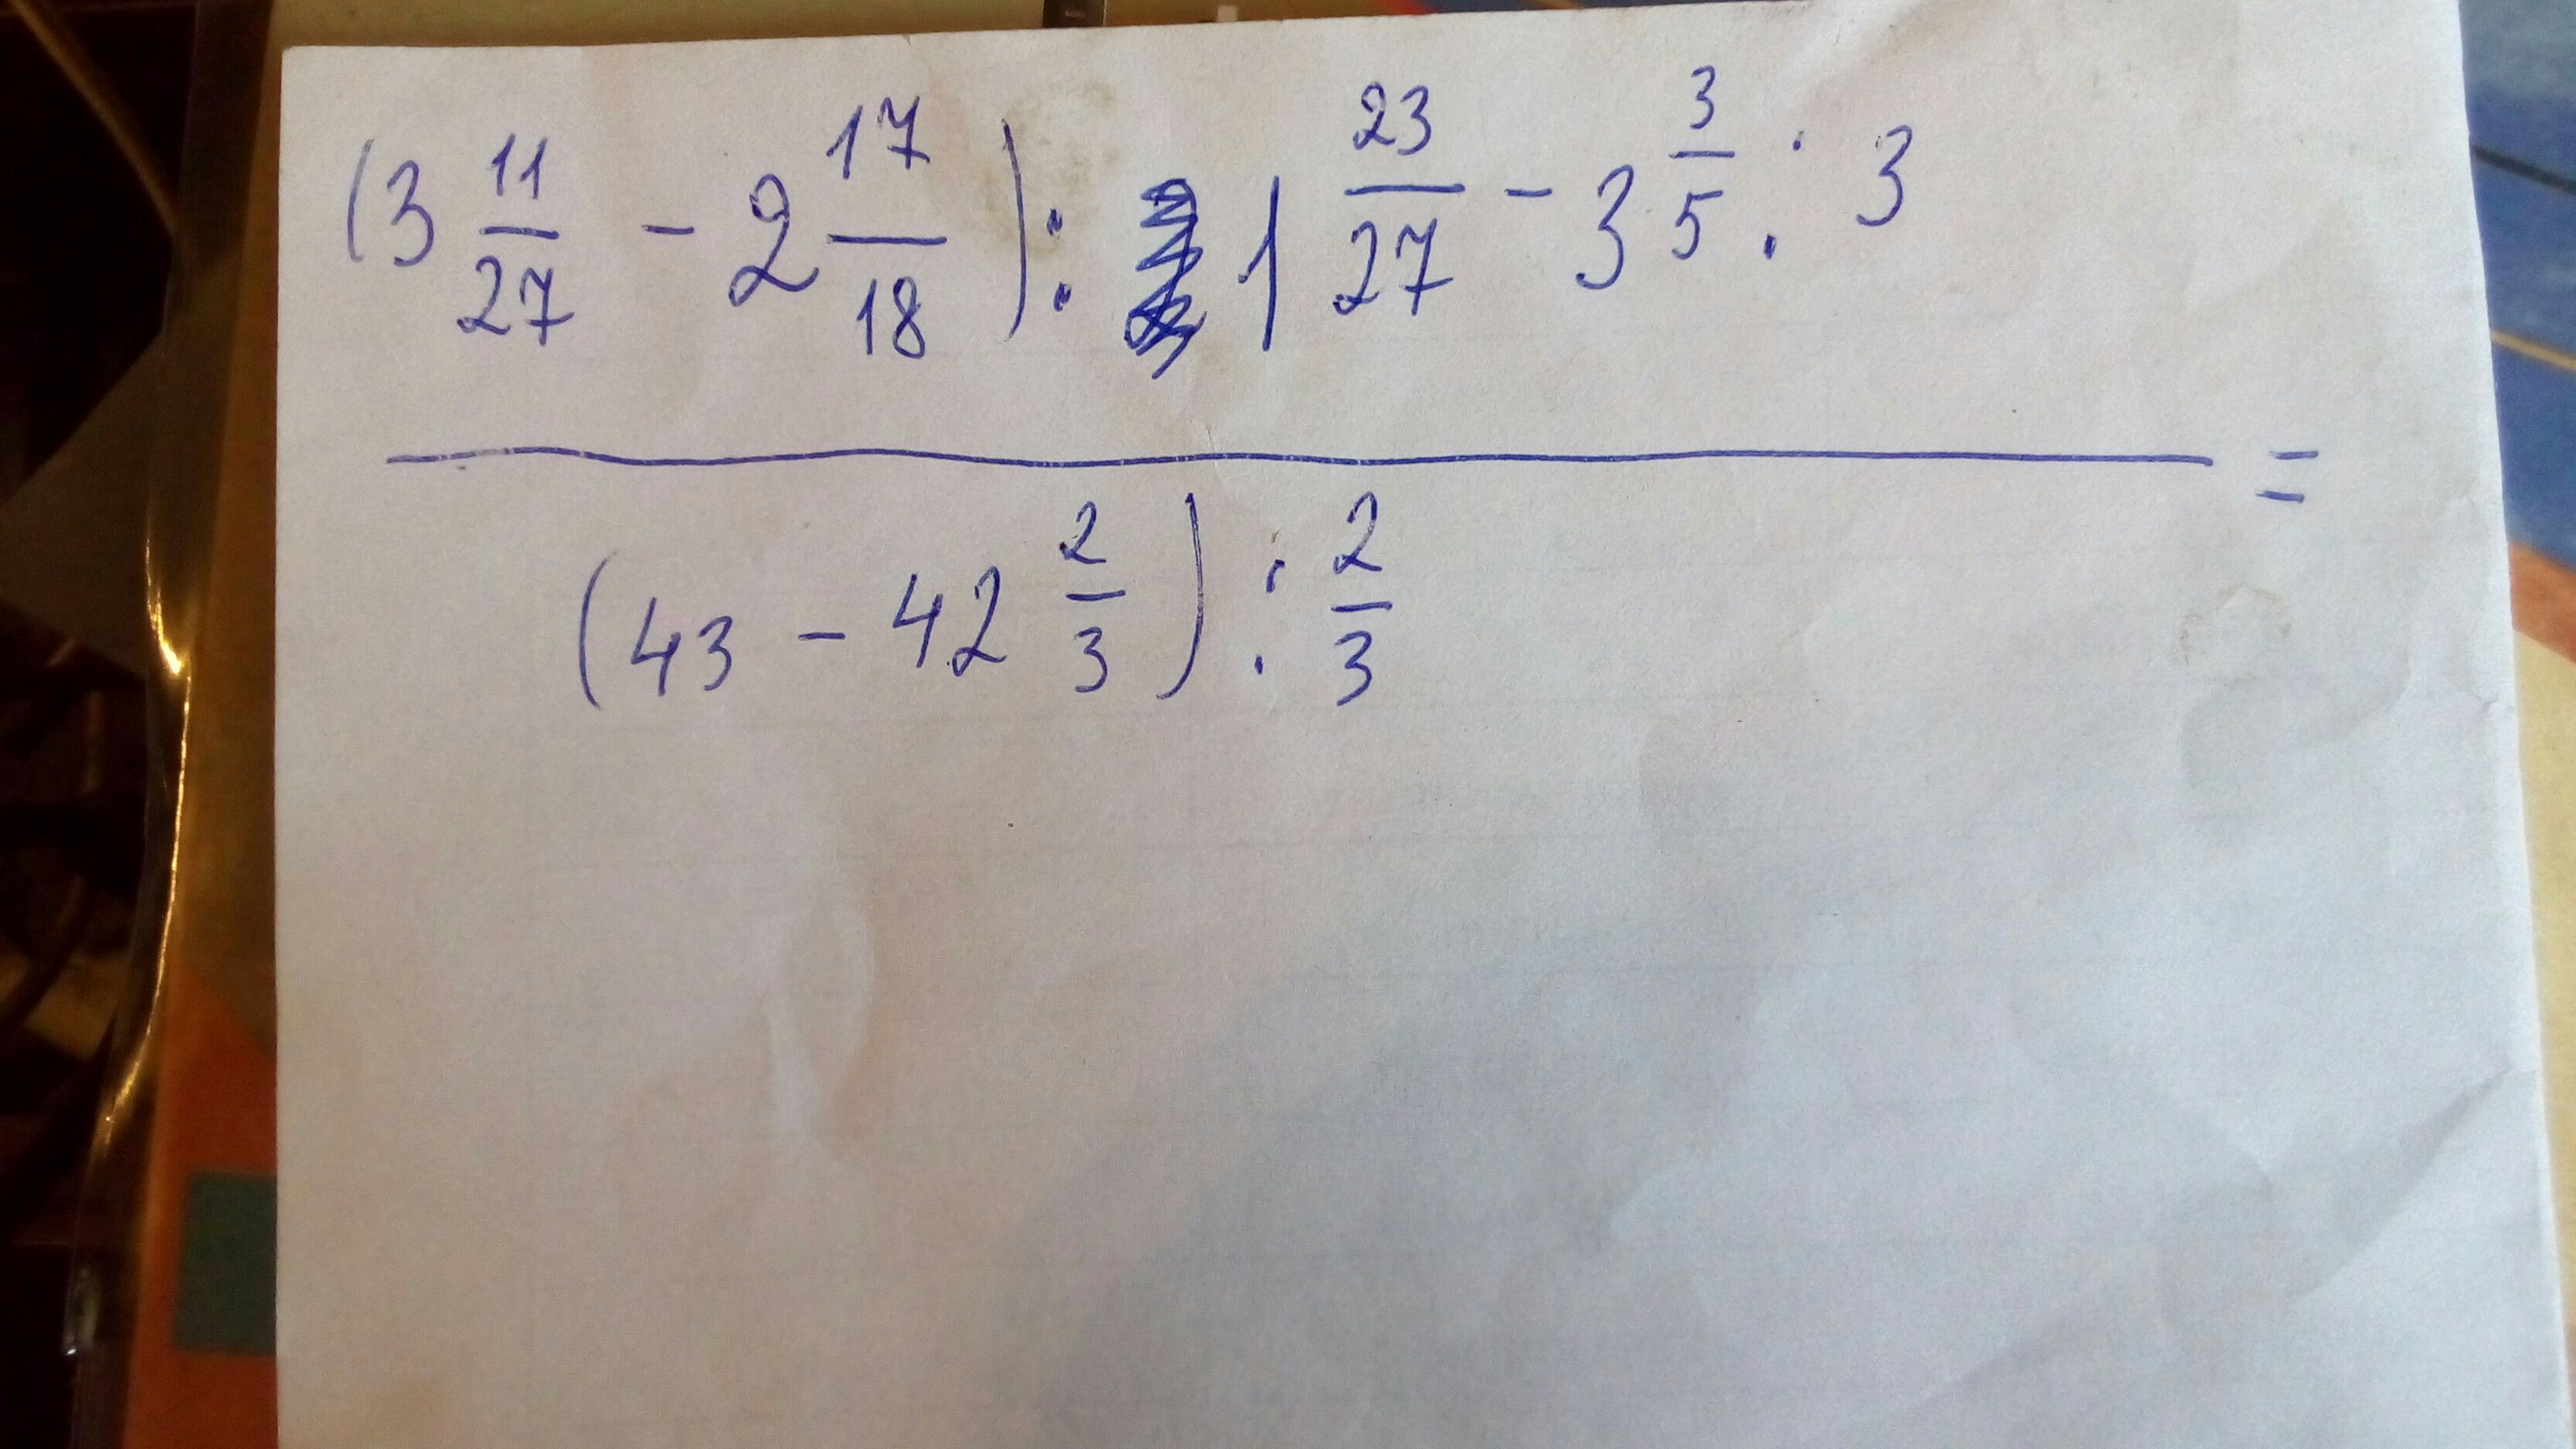 (3 11/27 - 2 17/18) : 1 23/27 - 3 3/5 : 3
=
(43 - 42 2/3) : 2/3